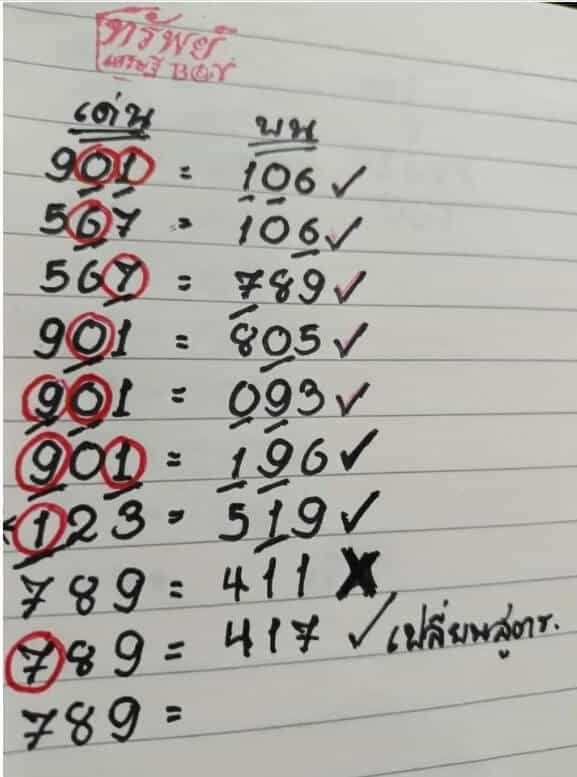 ทรัพย์
เศรษฐี BOY
เด่น บน
901 = 106 ✓
567 = 106 ✓
567 = 789 ✓
901 = 805 ✓
901 = 093 ✓
901 = 196 ✓
123 = 519 ✓
789 = 411 X
789 = 417 ✓ เปลี่ยนสูตร.
789 =